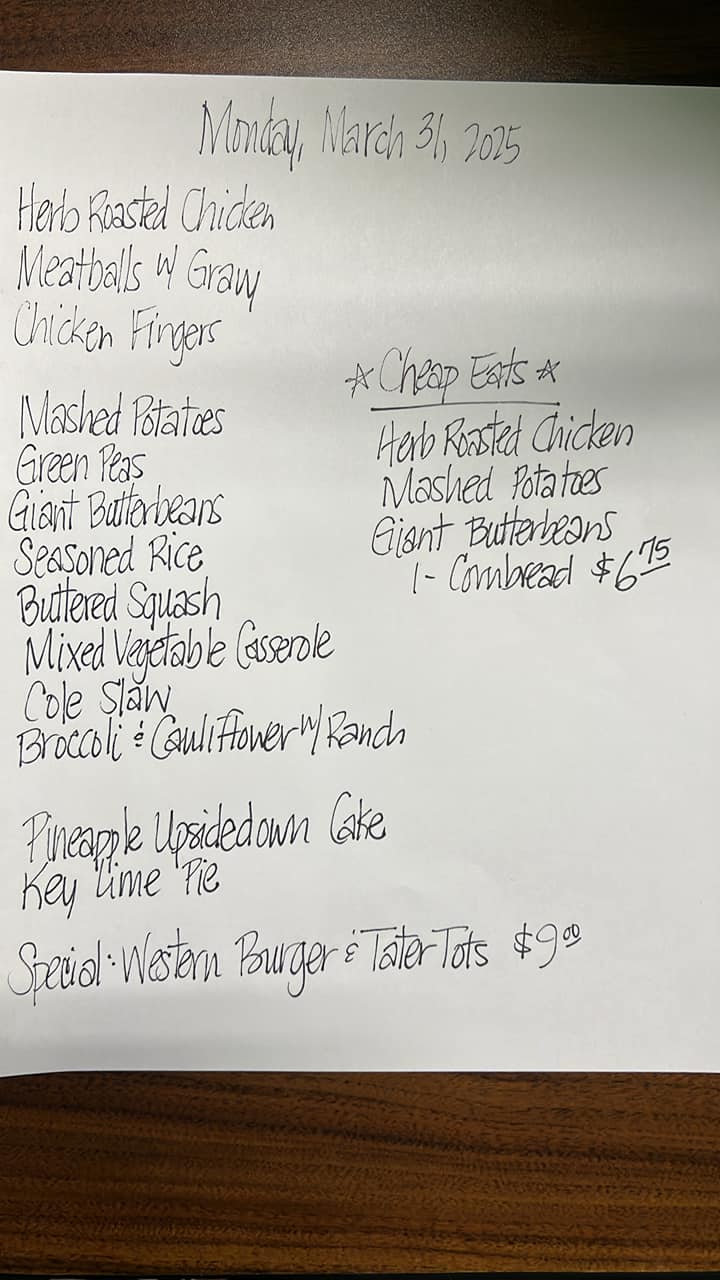 Monday, March 31, 2025
Herb Roasted Chicken
Meatballs w/ Gravy
Chicken Fingers
☆ Cheap Eats ☆
Herb Roasted Chicken
Mashed Potatoes
Giant Butterbeans
1- Cornbread $6.75
Mashed Potatoes
Green Peas
Giant Butterbeans
Seasoned Rice
Buttered Squash
Mixed Vegetable Casserole
Cole Slaw
Broccoli & Cauliflower w/ Ranch
Pineapple Upsidedown Cake
Key Lime Pie
Special: Western Burger & Tater Tots $9.00